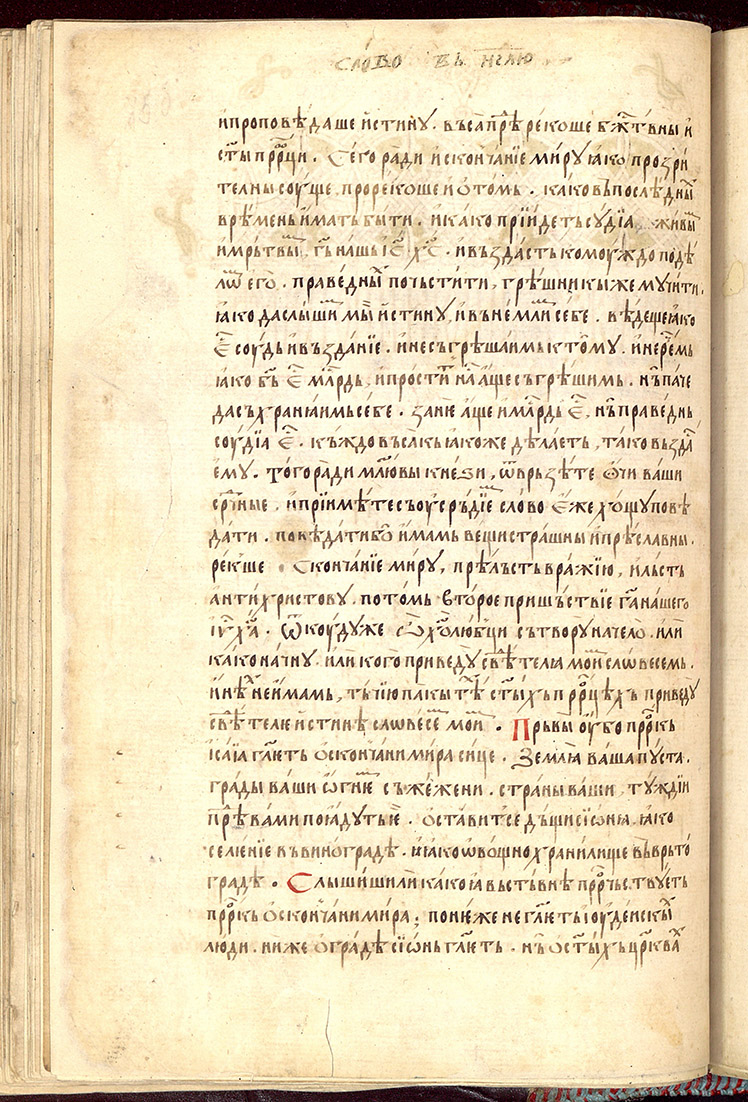 слово въ нⷣелю
и҆проповѣ́даше и҆́стинꙋ. въса прⷣѣрекоше бжⷭ҇твны и҆
ст҃ы прⷪ҇рци. Сего̀ ради и҆ скончанїе мирꙋ ꙗ҆ко прозри
телны соу́ще, прорекоше и҆ ѻ҆томь. како въ послѣ́днїи
врѣ́мень и҆́мать бы́ти. и҆ како прїи́деть сꙋдїа живы̏
и҆ мрътвы̏, гь҃ нашь і҆с҃ х҃с. и҆ въздасть комоуждо подѣ́
лѡ̏ є҆го̀. праведны̏ почьстити, грѣ́шникы же мꙋчи́ти,
ꙗ҆ко да слыши̏ мы̏ и҆́стинꙋ, и҆ вънемли̏ себе. вѣ́деще ꙗ҆ко
є҆ⷭ҇ соудь и҆ възданїе. и҆ не съгрѣшаимь к томꙋ. и҆ не рⷱ҇емь
ꙗ҆ко бь҃ є҆ⷭ҇ млⷭ҇рдь, и҆ простит на̏ а҆́ще съгрѣ́шимь. нь̀ паче
да съхранꙗ́имь себе. занѥ а҆ще и҆ млⷭ҇рдь є҆ⷭ҇, нь̀ праведнь
соудїа є҆ⷭ҇. къждо въсакь ꙗ҆коже дѣ́лаеть, тако възда̏
ємꙋ̀. того̀ ради млю҃ вы кнеѕи, ѿврьзѣ́те ѻ҆́чи ваши
срⷣчные. и҆ прїимѣ́те съ оу҆сръ́дїе̏ слово є҆́же хо́щꙋ повѣ́
дати. повѣ́дати бо̀ и҆́мамь вещи страшны и҆ прѣ́славны.
рекше. Скончанїе мирꙋ, прѣ́льсть вражїю, и҆ льсть
антихристовꙋ. потомь второе пришьствїе га҃ нашего
і҆с҃ х҃а. ѿкоудꙋже ѽ хⷭ҇олюбци сътворꙋ начело. или
како начнꙋ. или кого приведꙋ свⷣѣтелꙗ мои̏ слѡвесемь.
и҆нⷯѣ не и҆мамь, тъчїю пакы тⷯѣ ст҃ыхь прⷪ҇рцехь приведꙋ
свⷣѣтелѥ и҆́стинѣ слѡвесе̏ мои̏. Прьвы̏ оу҆́бо прⷪ҇ркь
і҆саїа глⷶеть о҆ скончани мира сице. Землꙗ ваша пꙋста.
гра́ды ваши ѻ҆гнѥ̏ съжежени. страны ваши, тꙋждїи
прⷣѣ вами поꙗдꙋть ѥ. ѻ҆ставит се дъщи сїѡнꙗ. ꙗ҆ко
селѥнїе въ виноградѣ. и ꙗко ѻвощно хранилище въ врьто
градѣ. Слышиши ли како ꙗвьствнѣ прⷪ҇рчьствꙋеть
прⷪ҇ркь о҆ скончани мира; понеже не глⷶеть і҆оуденскы̏
люди. ниже о҆ градѣ сїѡнь глⷶеть. нь̀ о҆ ст҃ыхь црⷦ҇ва̏